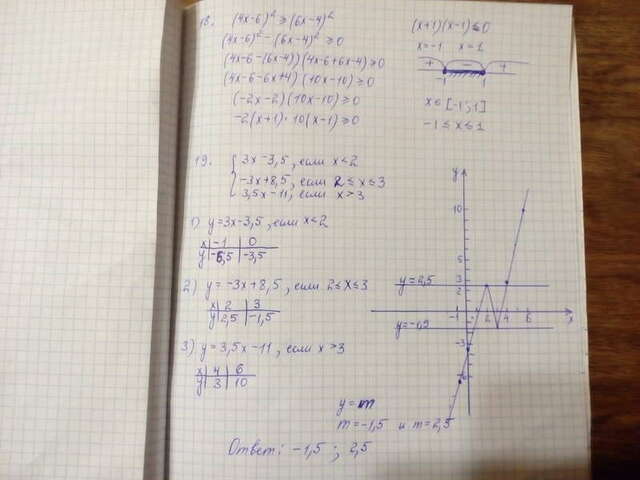 18. (4x-6)² ≥ (6x-4)²
(4x-6)² - (6x-4)² ≥ 0
(4x-6-(6x-4))(4x-6+6x-4) ≥ 0
(4x-6-6x+4)(10x-10) ≥ 0
(-2x-2)(10x-10) ≥ 0
-2(x+1)·10(x-1) ≥ 0
(x+1)(x-1) ≤ 0
x=-1 x=1
+ - +
-1 1
x∈[-1;1]
-1 ≤ x ≤ 1
19. { 3x-3,5, если x<2
-3x+8,5, если 2 ≤ x ≤ 3
3,5x-11, если x>3
1) y=3x-3,5, если x<2
x | -1 | 0
y | -6,5 | -3,5
2) y=-3x+8,5, если 2≤x≤3
x | 2 | 3
y | 2,5 | -1,5
3) y=3,5x-11, если x>3
x | 4 | 6
y | 3 | 10
y
10
y=2,5
3
2
-1 1 2 4 6
x
-3
y=m
m=-1,5 и m=2,5
Ответ: -1,5 ; 2,5